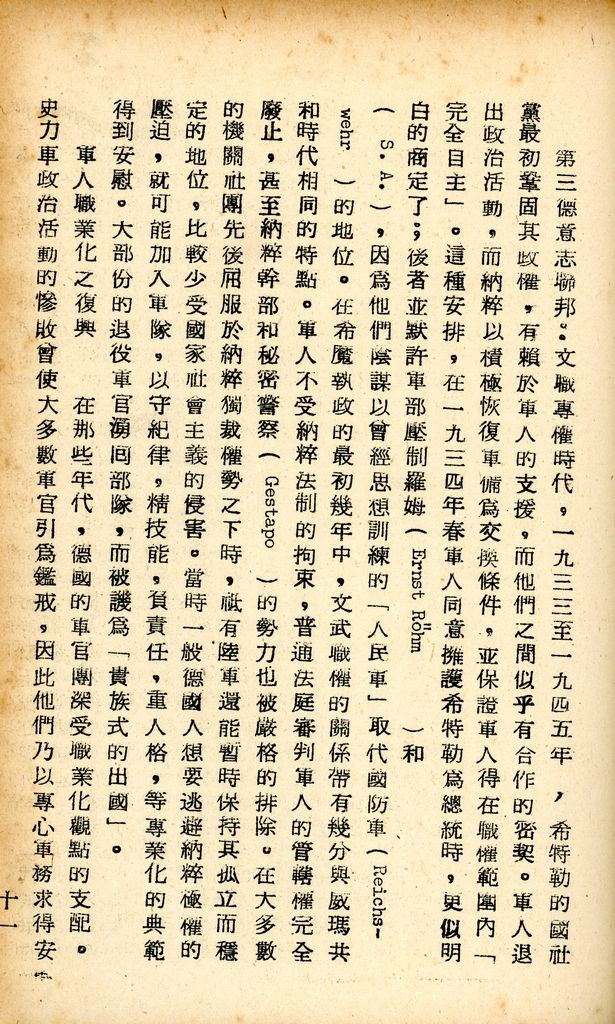 第三德意志聯邦：文職專權時代，一九三三至一九四五年，希特勒的國社
黨最初鞏固其政權，有賴於軍人的支援，而他們之間似乎有合作的密契。軍人退
出政治活動，而納粹以積極恢復軍備為交換條件，並保證軍人得在職權範圍內「
完全自主」。這種安排，在一九三四年春軍人同意擁護希特勒為總統時，更似明
白的商定了；後者並默許軍部壓制羅姆（Ernst Röhm）和
（S.A.），因為他們陰謀以曾經思想訓練的「人民軍」取代國防軍（Reichs-
wehr）的地位。在希魔執政的最初幾年中，文武職權的關係帶有幾分與威瑪共
和時代相同的特點。軍人不受納粹法制的拘束，普通法庭審判軍人的管轄權完全
廢止，甚至納粹幹部和秘密警察（Gestapo）的勢力也被嚴格的排除。在大多數
的機關社團先後屈服於納粹獨裁權勢之下時，祇有陸軍還能暫時保持其孤立而穩
定的地位，比較少受國家社會主義的侵害。當時一般德國人想要逃避納粹極權的
壓迫，就可能加入軍隊，以守紀律，精技能，負責任，重人格，等專業化的典範
得到安慰。大部份的退役軍官湧回部隊，而被譏為「貴族式的出國」。
軍人職業化之復興　在那些年代，德國的軍官團深受職業化觀點的支配。
史力軍政治活動的慘敗曾使大多數軍官引為鑑戒，因此他們乃以專心軍務求得安
十一